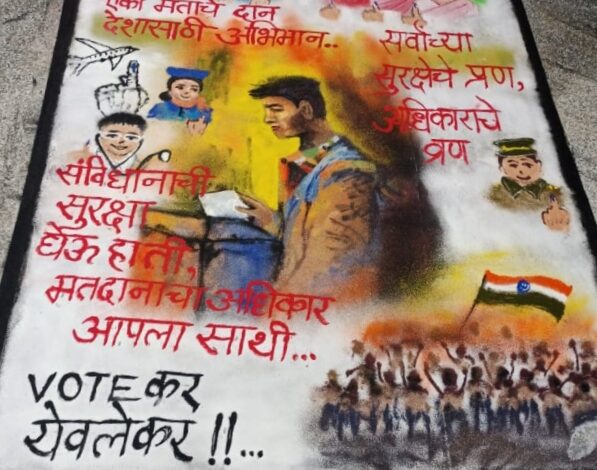 एका मताचे दान
देशासाठी अभिमान..
सर्वाच्या
सुरक्षेचे प्रण,
अधिकाराचे
व्रण
संविधानाची
सुरक्षा
घेऊ हाती,
मतदानाचा अधिकार
आपला साथी...
VOTE कर
येवलेकर !!...